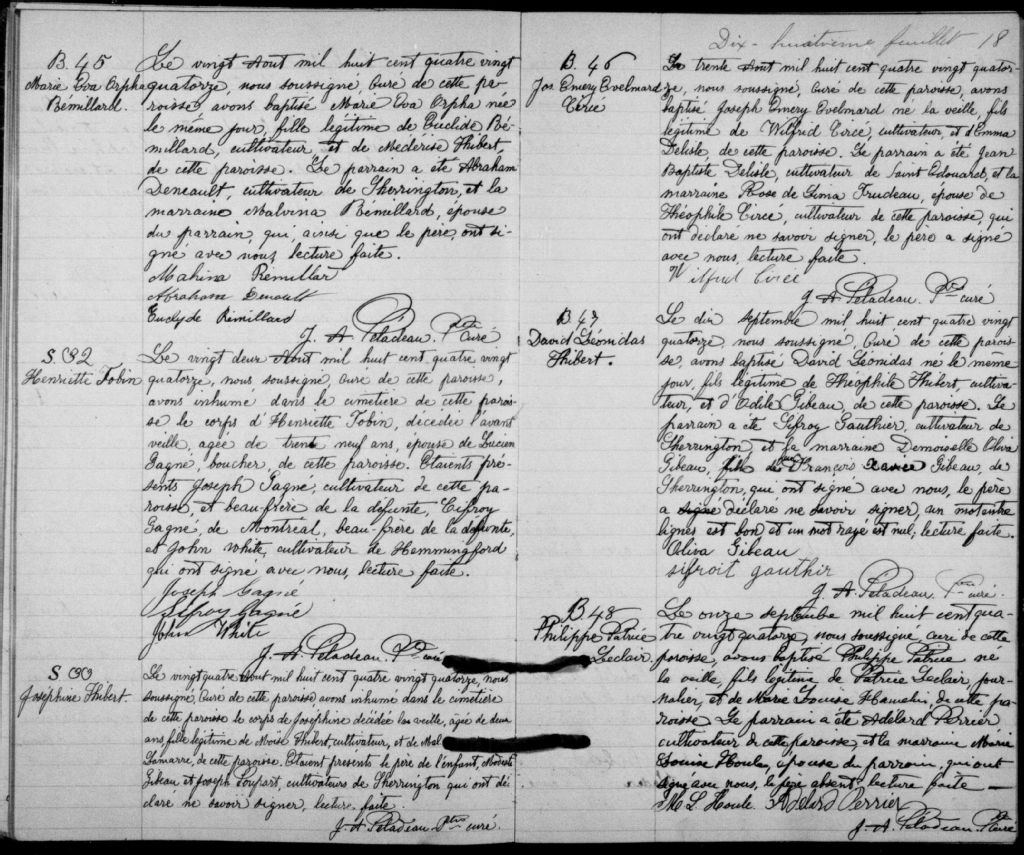 B. 45
Marie Eva Orpha
Rémillard.
Le vingt Août mil huit cent quatre vingt
quatorze, nous soussigné, Curé de cette pa-
roisse avons baptisé Marie Eva Orpha née
le même jour, fille légitime de Euclide Ré-
millard, cultivateur et de Mederise Thibert,
de cette paroisse. Le parrain a été Abraham
Deneault, cultivateur de Sherrington, et la
marraine Malvina Rémillard, épouse
du parrain, qui, ainsi que le père, ont si-
gné avec nous, lecture faite.
Malvina Remillar
Abraham Denault
Euclyde Rémillard
J. A. Péladeau. Ptre Curé
S 32
Henriette Tobin
Le vingt deux Août mil huit cent quatre vingt
quatorze, nous soussigné, Curé de cette paroisse,
avons inhumé dans le cimetière de cette parois-
se, le corps d'Henriette Tobin, décédée l'avant
veille, agée de trente neuf ans, épouse de Lucien
Gagné, boucher, de cette paroisse. Etaient pré-
sents Joseph Gagné, cultivateur de cette pa-
roisse, et beau-frère de la défunte, Cifroy
Gagné, de Montréal, beau-frère de la défunte,
et John White, cultivateur de Hemmingford
qui ont signé avec nous, lecture faite.
Joseph Gagné
Sifroy gagné
John White
J. A. Péladeau. Ptre curé
S 33
Josephine Thibert.
Le vingt quatre Août mil huit cent quatre vingt quatorze, nous
soussigné, Curé de cette paroisse avons inhumé dans le cimetière
de cette paroisse le corps de Josephine décédée la veille, agée de deux
ans, fille légitime de Moïse Thibert, cultivateur, et de
Lamarre, de cette paroisse. Etaient présents le père de l'enfant, Modeste
Gibeau et Joseph Loupart, cultivateurs de Sherrington qui ont dé-
claré ne savoir signer, lecture faite.
J. A. Péladeau. Ptre curé.
Dix-huitième feuillet 18
B. 46
Jos. Emery Evelmard
Circé
Le trente Août mil huit cent quatre vingt quator-
ze, nous soussigné, Curé de cette paroisse, avons
baptisé Joseph Emery Evelmard né la veille, fils
légitime de Wilfrid Circé, cultivateur, et d'Emma
Delisle de cette paroisse. Le parrain a été Jean
Baptiste Delisle, cultivateur de Saint Edouard, et la
marraine Rose de Lima Trudeau, épouse de
Théophile Circé, cultivateur de cette paroisse, qui
ont déclaré ne savoir signer, le père a signé
avec nous, lecture faite.
Wilfrid Circé
J. A. Péladeau. Ptre curé
B. 47
David Léonidas
Thibert.
Le dix septembre mil huit cent quatre vingt
quatorze, nous soussigné, Curé de cette parois-
se, avons baptisé David Leonidas né le même
jour, fils légitime de Théophile Thibert, cultiva-
teur, et d'Odile Gibeau, de cette paroisse. Le
parrain a été Sifroy Gauthier, cultivateur de
Sherrington et la marraine Demoiselle Oliva
Gibeau, fille de François Xavier Gibeau, de
Sherrington, qui ont signé avec nous, le père
a signé déclaré ne savoir signer, un mot entre
lignes est bon et un mot rayé est nul, lecture faite.
Oliva Gibeau
sifroit gauthir
J. A. Péladeau. Ptre curé.
B. 48
Philippe Patrice
Leclair.
Le onze septembre mil huit cent qua-
tre vingt quatorze, nous soussigné, curé de cette
paroisse, avons baptisé Philippe Patrice né
la veille, fils légitime de Patrice Leclair, jour-
nalier, et de Marie Louise Hamelin, de cette pa-
roisse. Le parrain a été Adelard Perrier
cultivateur de cette paroisse, et la marraine Marie
Louise Houle, épouse du parrain, qui ont
signé avec nous, le père absent. lecture faite —
M L Houle Adelard Perrier
J. A. Péladeau. Ptre Curé